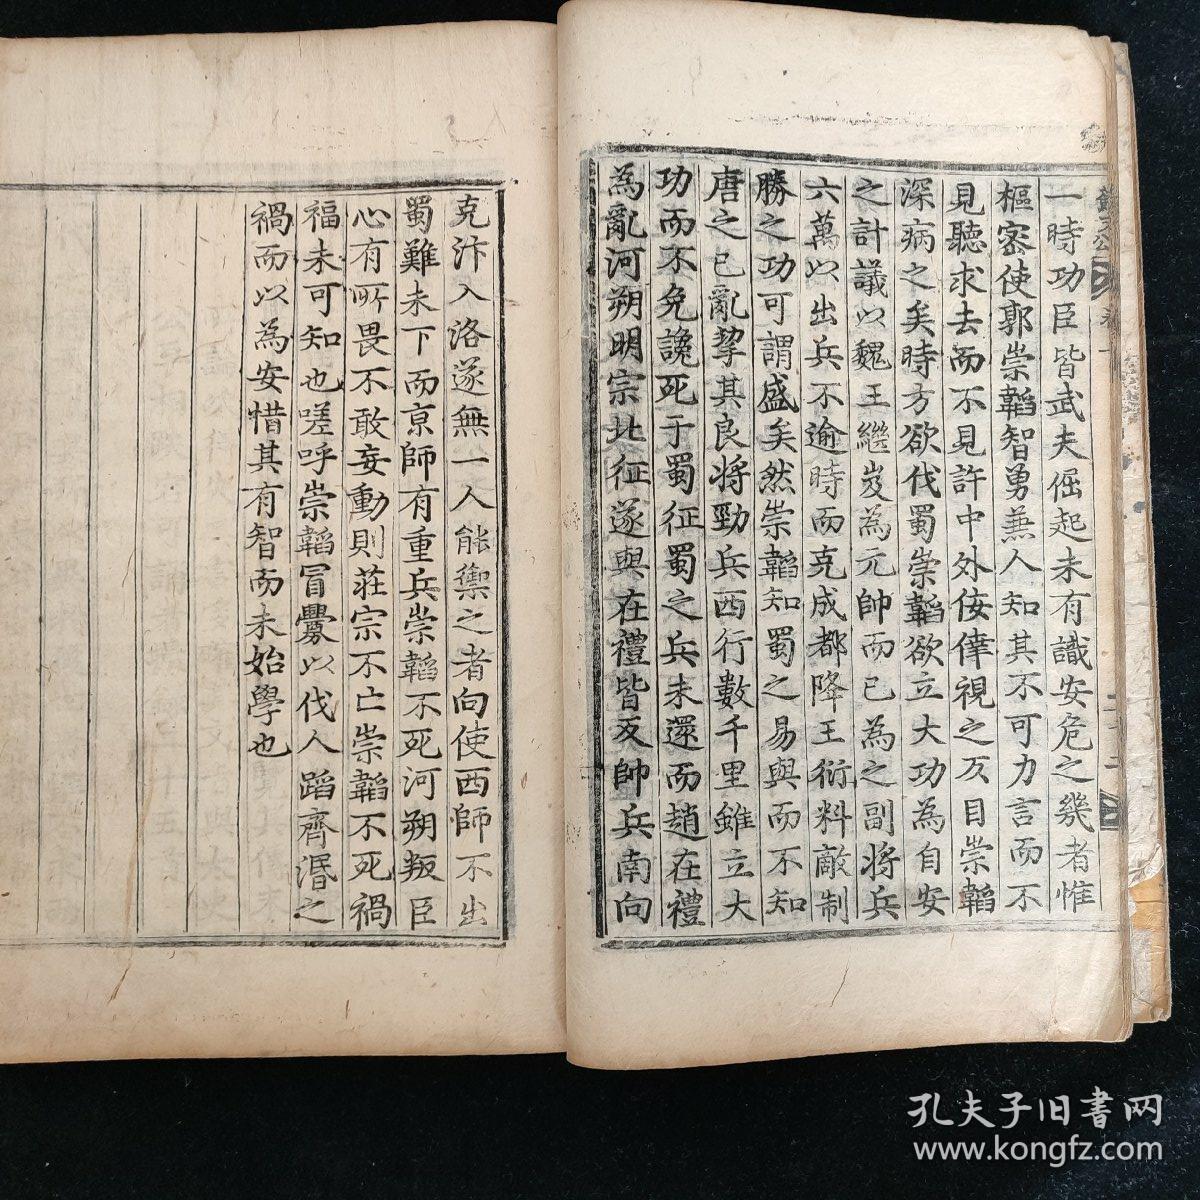 一時功臣皆武夫倔起未有識安危之幾者惟
樞密使郭崇韜智勇兼人知其不可力言而不
見聽求去而不見許中外侫倖視之仄目崇韜
深病之矣時方欲伐蜀崇韜欲立大功為自安
之計議以魏王繼岌為元帥而已為之副將兵
六萬以出兵不逾時而克成都降王衍料敵制
勝之功可謂盛矣然崇韜知蜀之易與而不知
唐之已亂挈其良将勁兵西行數千里雖立大
功而不免讒死于蜀征蜀之兵未還而趙在禮
為亂河朔明宗北征遂與在禮皆反帥兵南向
克汴入洛遂無一人能禦之者向使西師不出
蜀難未下而京師有重兵崇韜不死河朔叛臣
心有所畏不敢妄動則莊宗不亡崇韜不死禍
福未可知也嗟呼崇韜冒釁以伐人蹈齊湣之
禍而以為安惜其有智而未始學也
孔夫子旧书网
www.kongfz.com